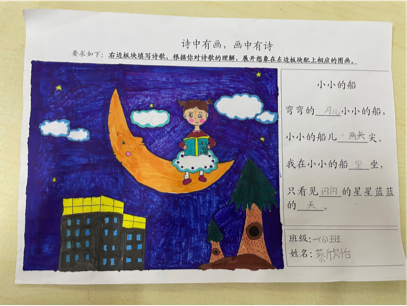 诗中有画，画中有诗
要求如下：右边板块填写诗歌，根据你对诗歌的理解，展开想象在左边板块配上相应的图画。
小小的船
弯弯的月儿小小的船，
小小的船儿两头尖。
我在小小的船里坐，
只看见闪闪的星星蓝蓝
的天。
班级：一(1)班
姓名：蔡欣怡